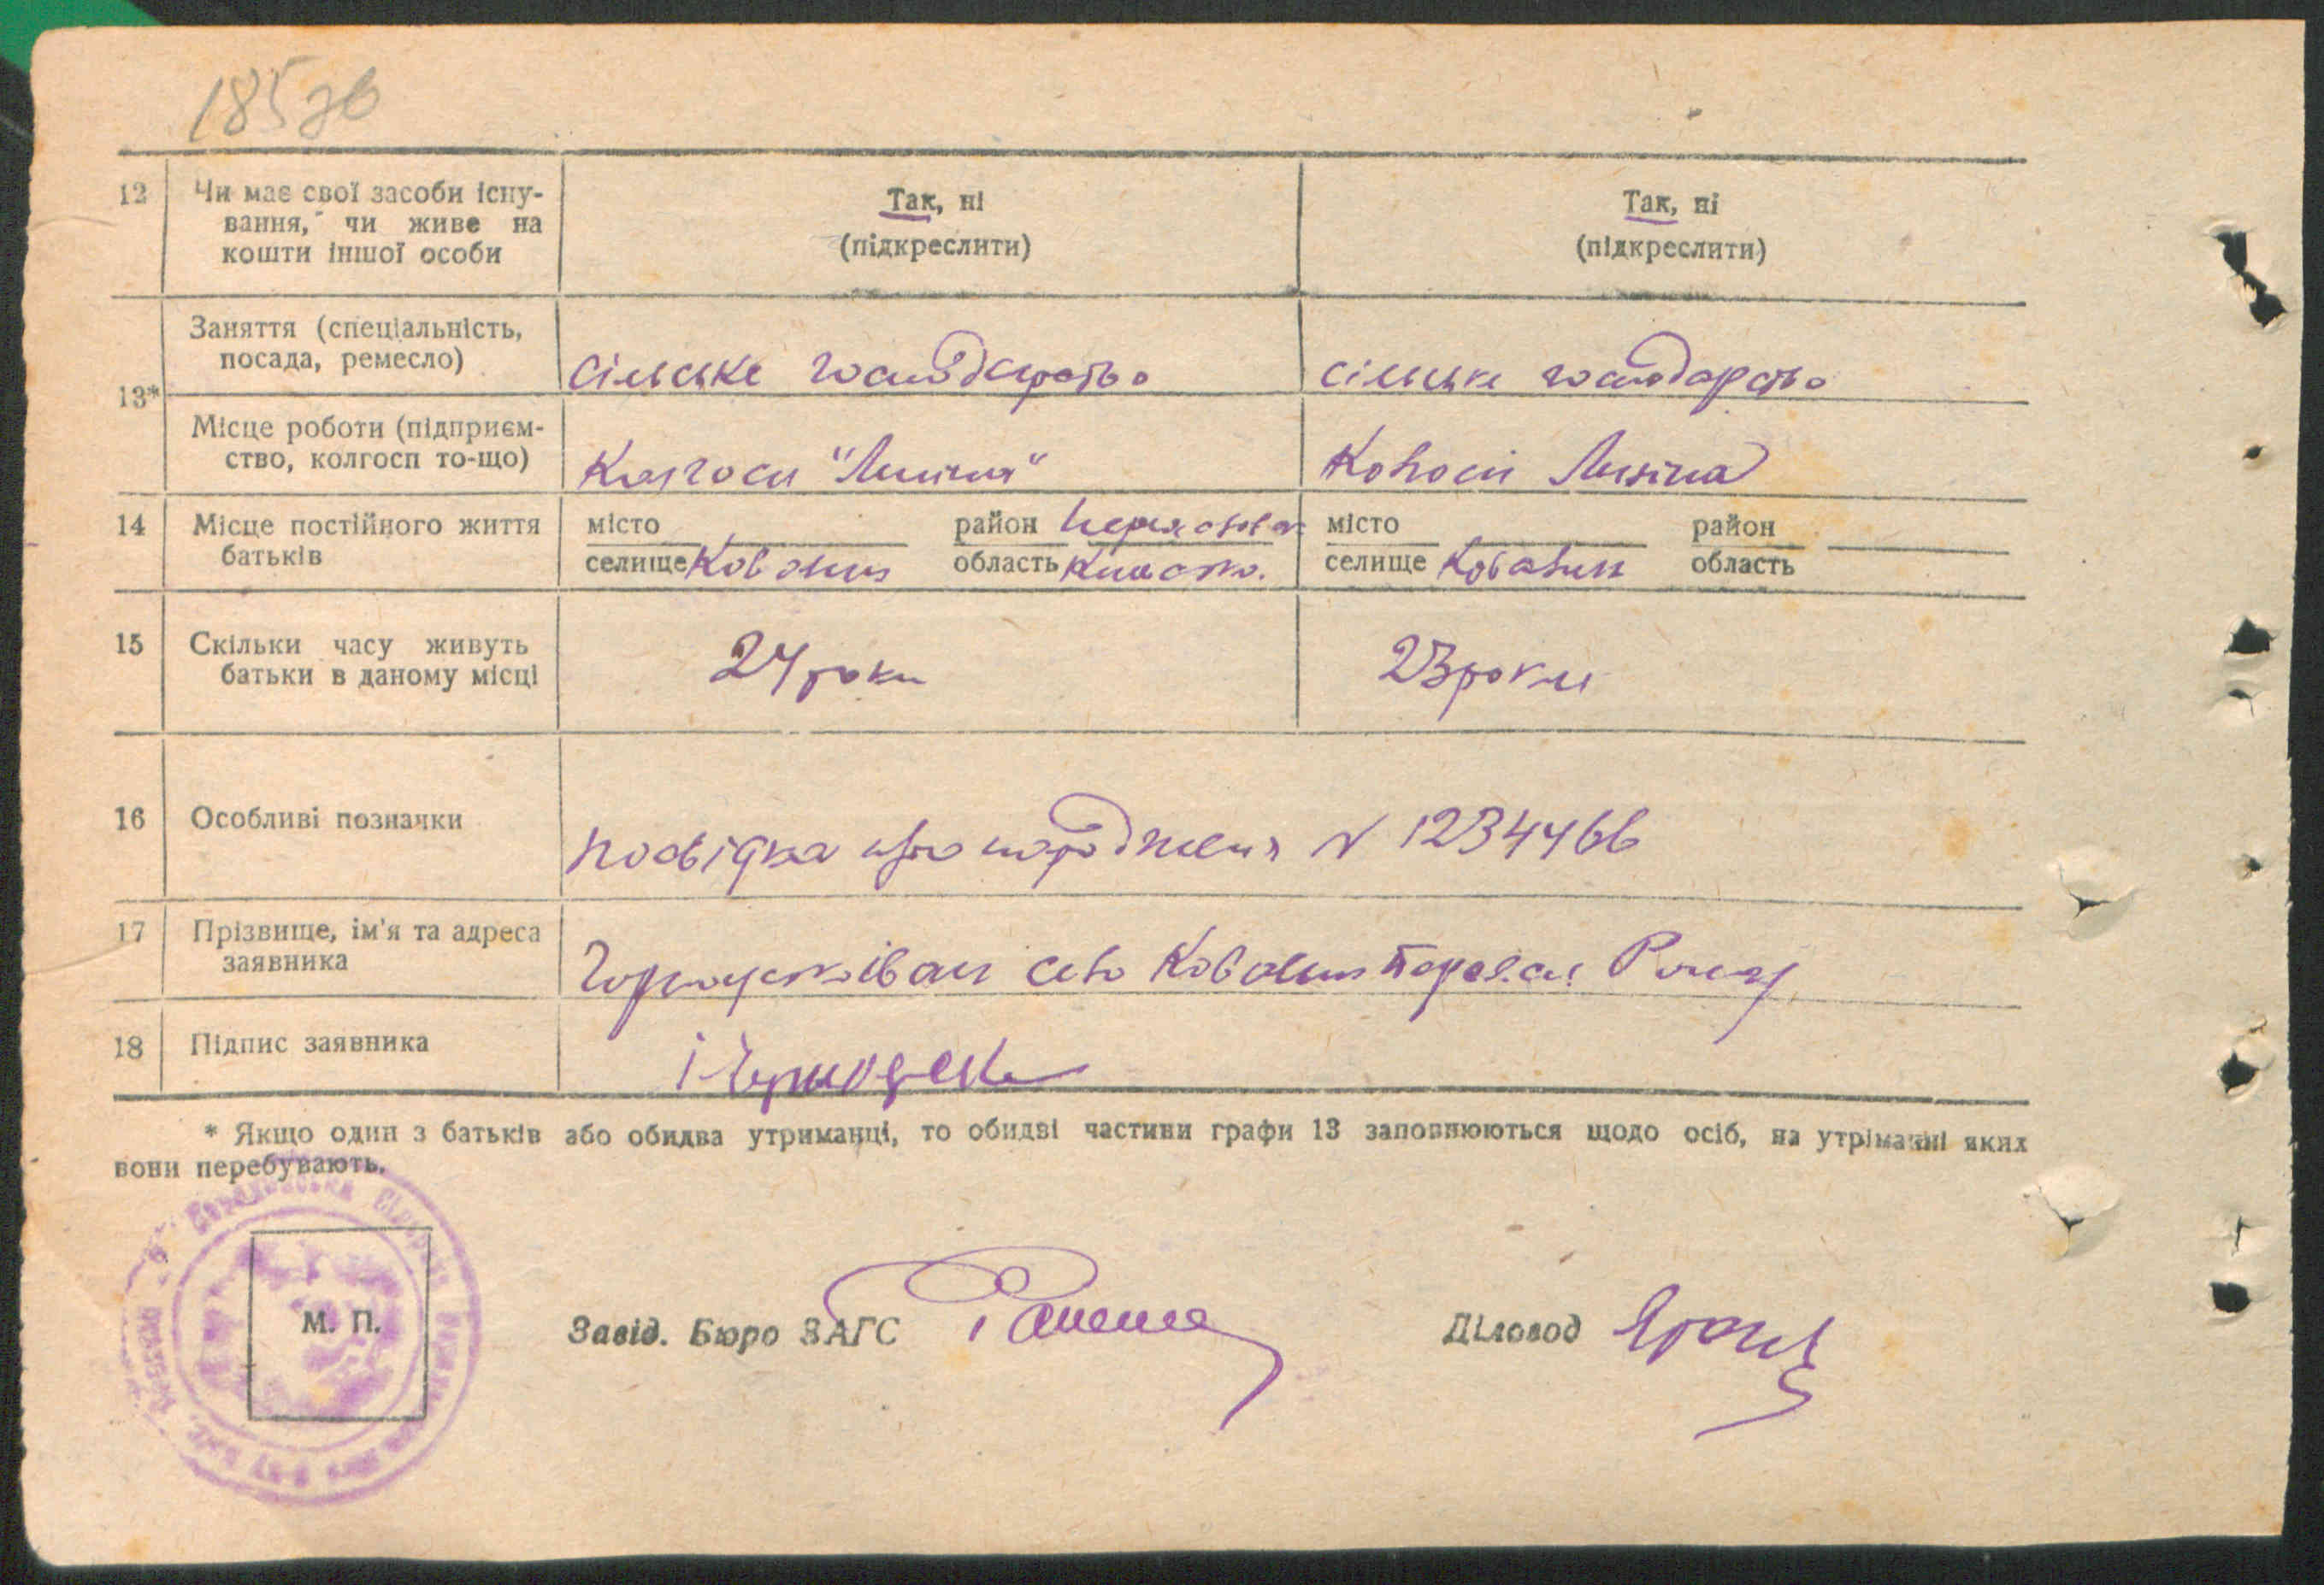 185зв
12 Чи має свої засоби існу-
вання, чи живе на
кошти іншої особи
Так, ні
(підкреслити)
Так, ні
(підкреслити)
13*
Заняття (спеціальність,
посада, ремесло)
сільське господарство
сільське господарство
Місце роботи (підприєм-
ство, колгосп то-що)
Колгосп "Леніна"
Колгосп Леніна
14 Місце постійного життя
батьків
місто район
селище Ковалин область Київська.
місто район
селище Ковалин область
15 Скільки часу живуть
батьки в даному місці
24 роки
23 роки
16 Особливі позначки
посвідка про народження N 1234466
17 Прізвище, ім'я та адреса
заявника
село Ковалин
18 Підпис заявника
* Якщо один з батьків або обидва утриманці, то обидві частини графи 13 заповнюються щодо осіб, на утріманні яких
вони перебувають.
М. П.
Завід. Бюро ЗАГС
Діловод